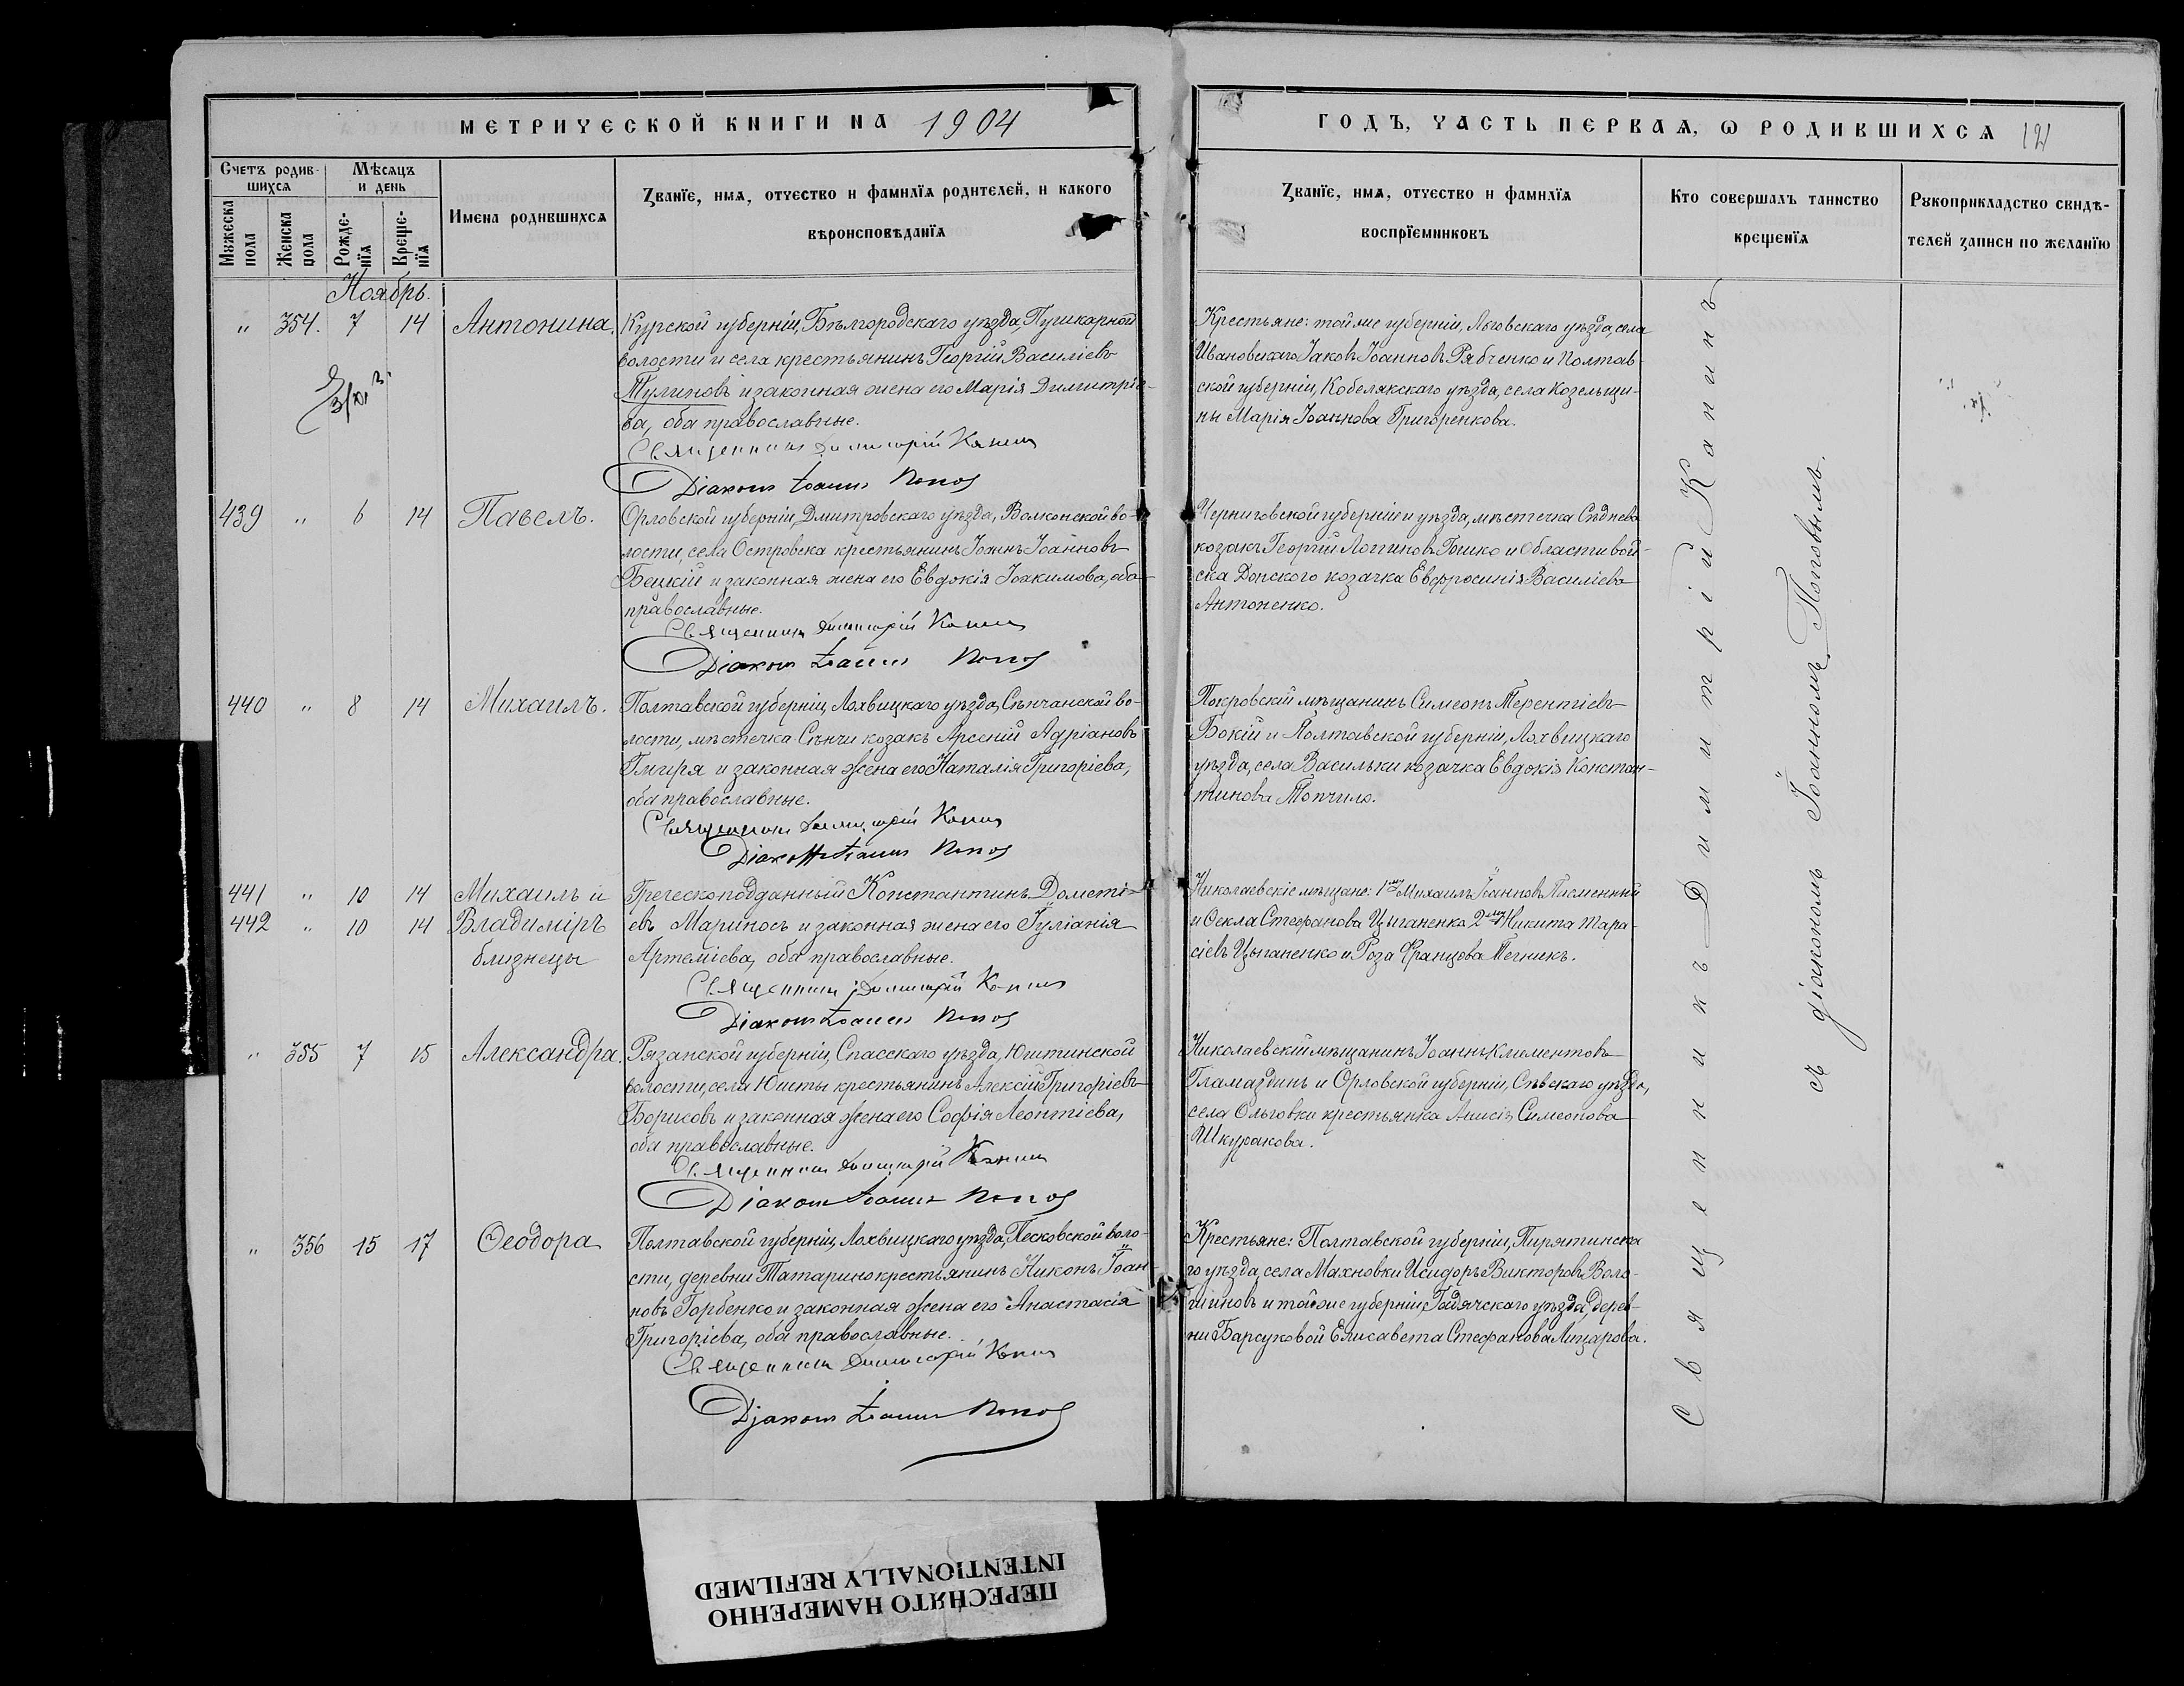 МЕТРИЧЕСКОЙ КНИГИ НА 1904
Счетъ родив-
шихся
Мѣсяцъ
и день
Мужеска
пола
Женска
пола
Рожде-
нія
Креще-
нія
Имена родившихся
Званіе, имя, отчество и фамилія родителей, и какого
вѣроисповѣданія
Ноябрь.
" 354. 7 14 Антонина.
Курской губерніи, Бѣлгородскаго уѣзда, Пушкарной
волости и села крестьянинъ Георгій Василіевъ
Тулиновъ и законная жена его Марія Димитріе-
ва, оба православные.
Священникъ Димитрій Капинъ
Діаконъ Іоаннъ Поповъ
439 " 6 14 Павелъ.
Орловской губерніи, Дмитровскаго уѣзда, Волконской во-
лости, села Островска крестьянинъ Іоаннъ Іоанновъ
Бецкій и законная жена его Евдокія Іоакимова, оба
православные.
Священникъ Димитрій Капинъ
Діаконъ Іоаннъ Поповъ
440 " 8 14 Михаилъ.
Полтавской губерніи, Лохвицкаго уѣзда, Сѣнчанской во-
лости, мѣстечка Сѣнчи козакъ Арсеній Адріановъ
Гмиря и законная жена его Наталія Григоріева,
оба православные.
Священникъ Димитрій Капинъ
Діаконъ Іоаннъ Поповъ
441 " 10 14 Михаилъ и
442 " 10 14 Владиміръ
близнецы
Греческоподданный Константинъ Дометі-
евъ Мариносъ и законная жена его Іуліанія
Артеміева, оба православные.
Священникъ Димитрій Капинъ
Діаконъ Іоаннъ Поповъ
" 355 7 15 Александра.
Рязанской губерніи, Спасскаго уѣзда, Юштинской
волости, села Юшты крестьянинъ Алексій Григоріевъ
Борисовъ и законная жена его Софія Леонтіева,
оба православные.
Священникъ Димитрій Капинъ
Діаконъ Іоаннъ Поповъ
" 356 15 17 Ѳеодора
Полтавской губерніи, Лохвицкаго уѣзда, Песковской воло-
сти, деревни Татарино крестьянинъ Никонъ Іоан-
новъ Горбенко и законная жена его Анастасія
Григоріева, оба православные.
Священникъ Димитрій Капинъ
Діаконъ Іоаннъ Поповъ
ГОДЪ, ЧАСТЬ ПЕРВАЯ, Ѡ РОДИВШИХСЯ 121
Званіе, имя, отчество и фамилія
воспріемниковъ
Кто совершалъ таинство
крещенія
Рукоприкладство свидѣ-
телей записи по желанію
Крестьяне: той же губерніи, Льговскаго уѣзда, села
Ивановскаго Іаковъ Іоанновъ Рябченко и Полтав-
ской губерніи, Кобелякскаго уѣзда, села Козельщи-
ны Марія Іоаннова Григоренкова.
Черниговской губерніи и уѣзда, мѣстечка Сѣднева
козакъ Георгій Логгиновъ Гошко и Области вой-
ска Донского козачка Евфросинія Василіева
Антоненко.
Покровскій мѣщанинъ Симеонъ Терентіевъ
Бокій и Полтавской губерніи, Лохвицкаго
уѣзда, села Васильки козачка Евдокія Констан-
тинова Топчило.
Николаевскіе мѣщане: 1му Михаилъ Іоанновъ Писменный
и Ѳекла Стефанова Цыганенко 2му Никита Тара-
сіевъ Цыганенко и Роза Францова Печникъ.
Николаевскій мѣщанинъ Іоаннъ Климентовъ
Гламаздинъ и Орловской губерніи, Сѣвскаго уѣзда,
села Ольговки крестьянка Анисія Симеонова
Шкуракова.
Крестьяне: Полтавской губерніи, Пирятинска-
го уѣзда, села Махновки Исидоръ Викторовъ Воло-
шиновъ и той же губерніи, Гадячскаго уѣзда, дерев-
ни Барсуковой Елисавета Стефанова Лицарова.
Священникъ Димитрій Капинъ
съ діакономъ Іоанномъ Поповымъ.
ПЕРЕСНЯТО НАМЕРЕННО
INTENTIONALLY REFILMED